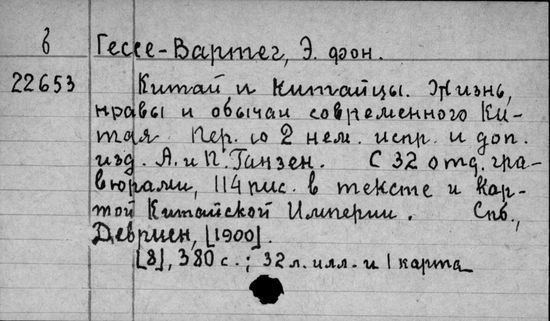 в Гессе-Вартег, Э. фон.
22653 Китай и Китайцы. Жизнь,
нравы и обычаи современного Ки-
тая. Пер. со 2 нем. испр. и доп.
изд. А. и П. Ганзен. С 32 отд. гра-
вюрами, 114 рис. в тексте и кар-
той Китайской Империи. Спб.,
Девриен, [1900].
[8], 380 с.; 32 л. илл. и 1 карта